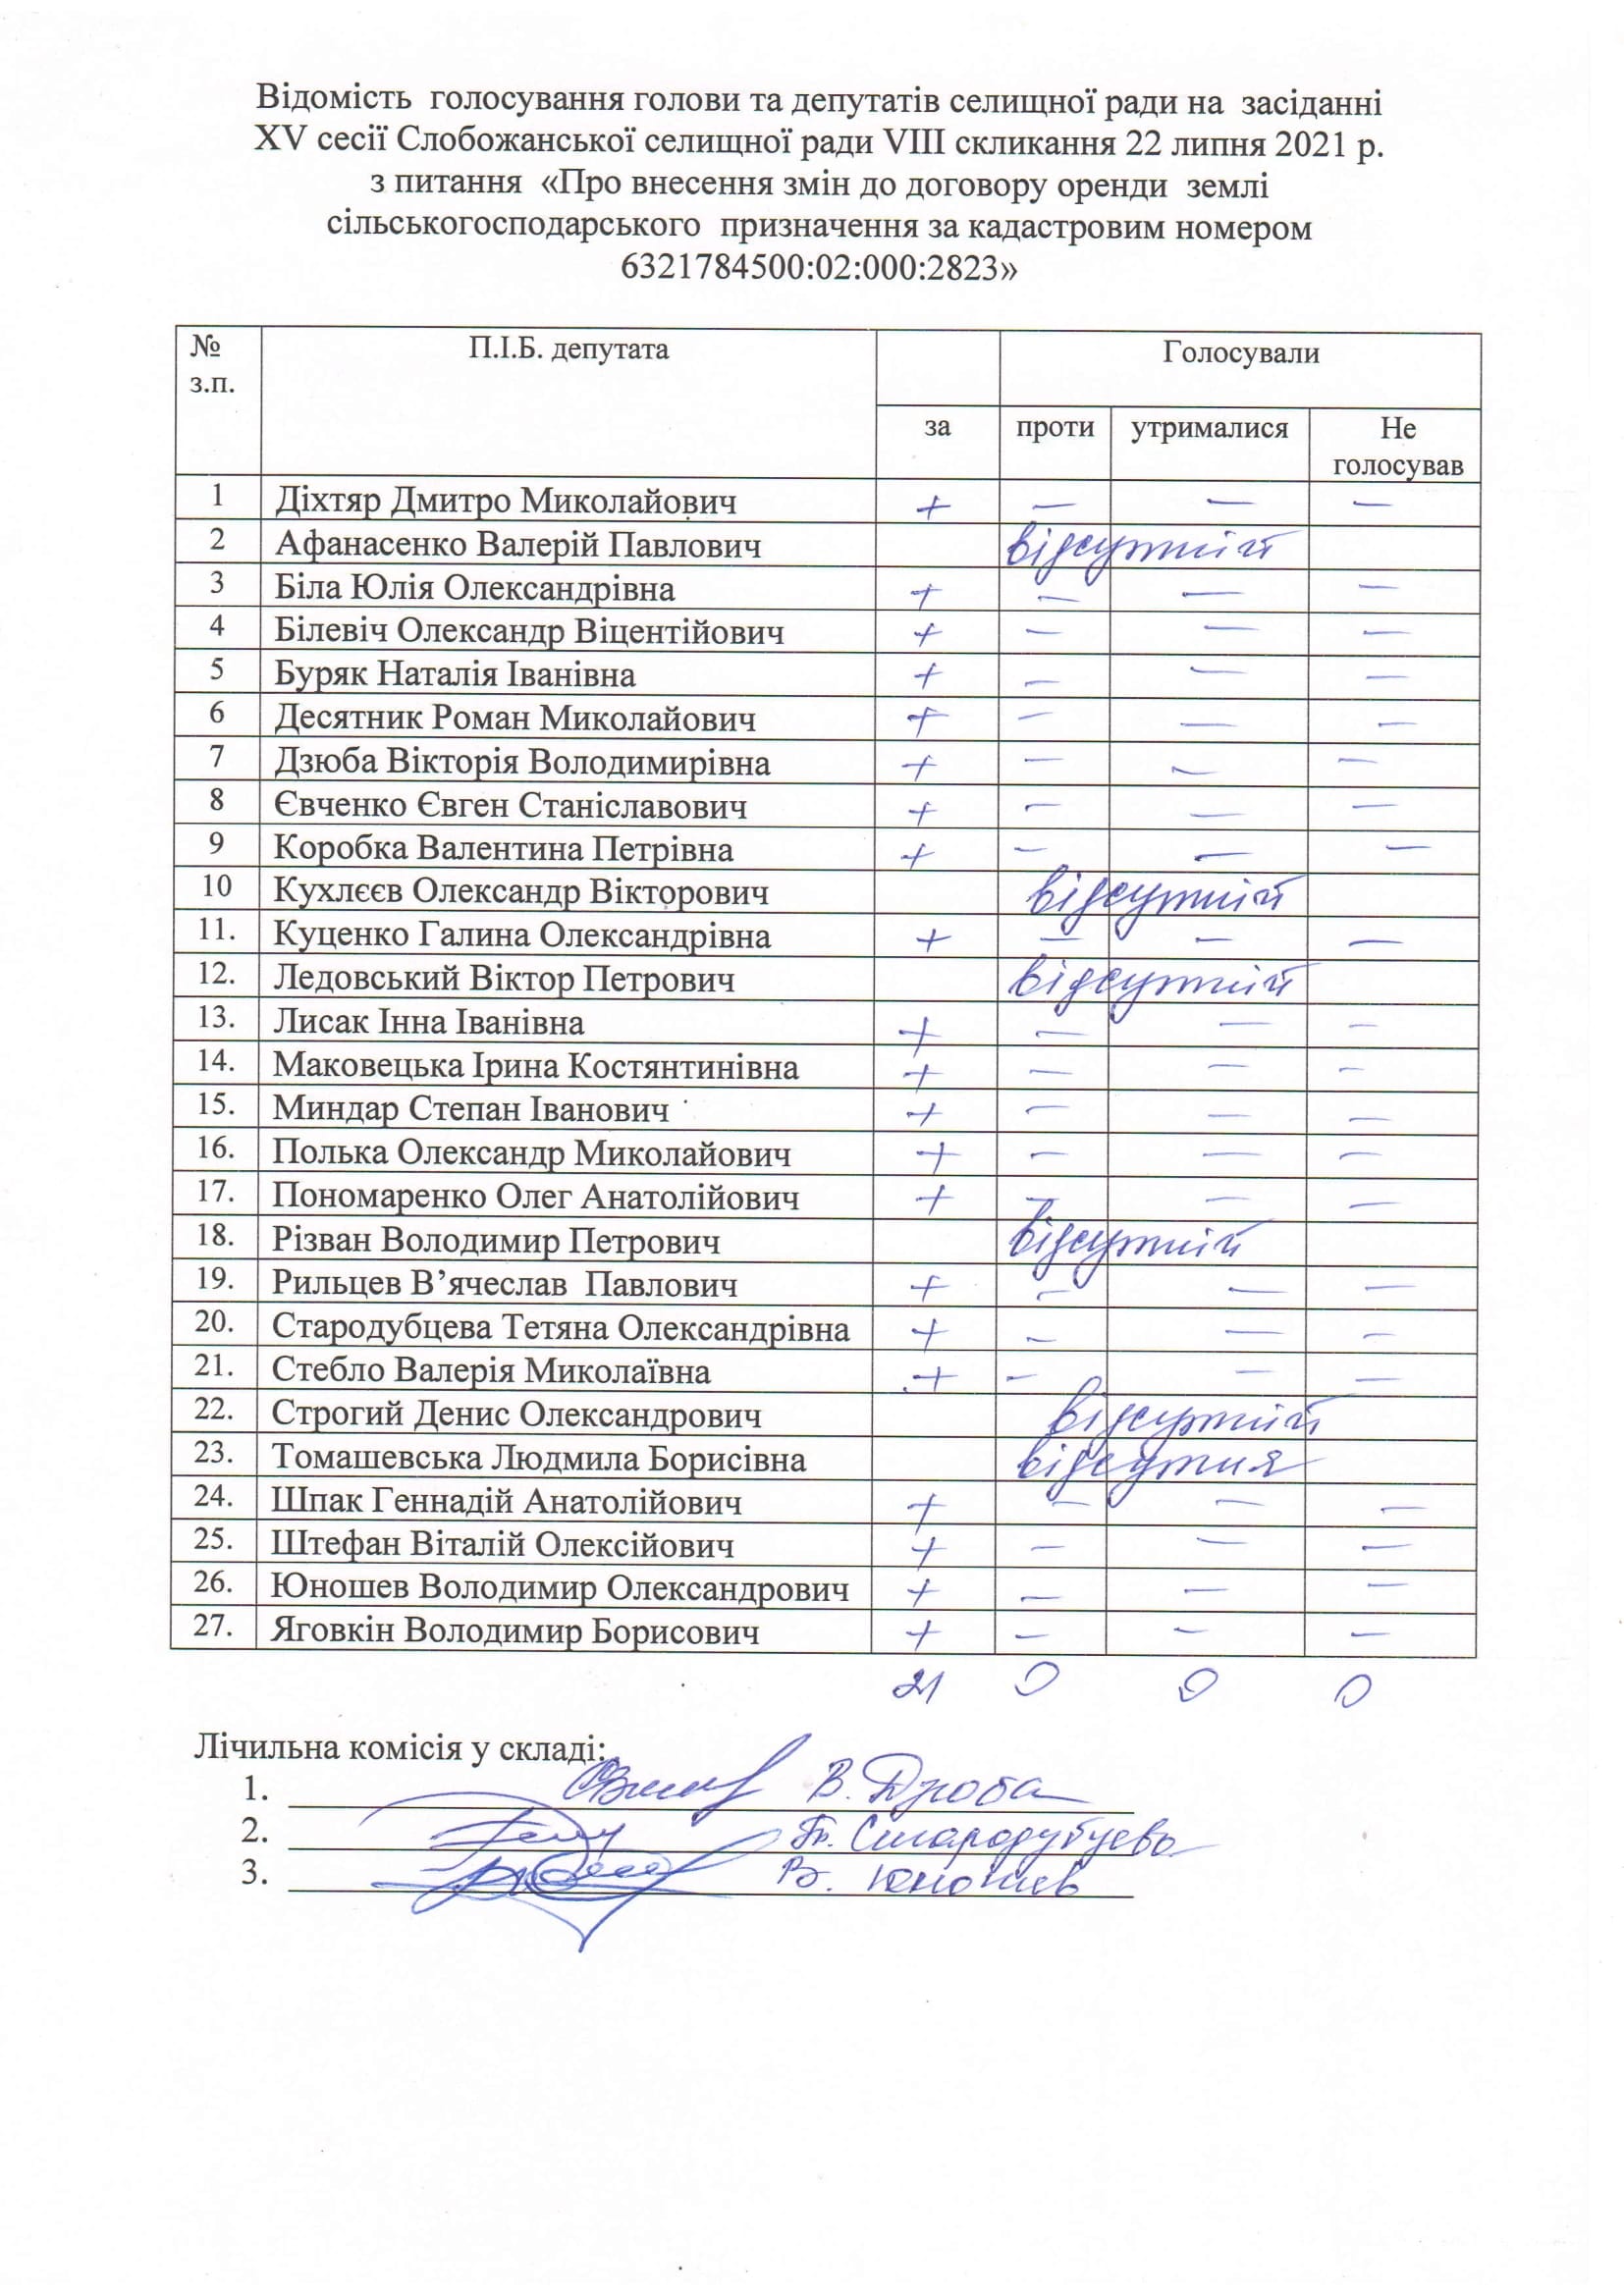 Відомість голосування голови та депутатів селищної ради на засіданні
XV сесії Слобожанської селищної ради VIII скликання 22 липня 2021 р.
з питання «Про внесення змін до договору оренди землі
сільськогосподарського призначення за кадастровим номером
6321784500:02:000:2823»
№ з.п. П.І.Б. депутата Голосували
за проти утрималися Не голосував
1 Діхтяр Дмитро Миколайович + — — —
2 Афанасенко Валерій Павлович відсутній
3 Біла Юлія Олександрівна + — — —
4 Білевіч Олександр Віцентійович + — — —
5 Буряк Наталія Іванівна + — — —
6 Десятник Роман Миколайович + — — —
7 Дзюба Вікторія Володимирівна + — — —
8 Євченко Євген Станіславович + — — —
9 Коробка Валентина Петрівна + — — —
10 Кухлєєв Олександр Вікторович відсутній
11. Куценко Галина Олександрівна + — — —
12. Ледовський Віктор Петрович відсутній
13. Лисак Інна Іванівна + — — —
14. Маковецька Ірина Костянтинівна + — — —
15. Миндар Степан Іванович + — — —
16. Полька Олександр Миколайович + — — —
17. Пономаренко Олег Анатолійович + — — —
18. Різван Володимир Петрович відсутній
19. Рильцев В’ячеслав Павлович + — — —
20. Стародубцева Тетяна Олександрівна + — — —
21. Стебло Валерія Миколаївна + — — —
22. Строгий Денис Олександрович відсутній
23. Томашевська Людмила Борисівна відсутня
24. Шпак Геннадій Анатолійович + — — —
25. Штефан Віталій Олексійович + — — —
26. Юношев Володимир Олександрович + — — —
27. Яговкін Володимир Борисович + — — —
21 0 0 0
Лічильна комісія у складі:
1. В. Дзюба
2. Т. Стародубцева
3. В. Юношев